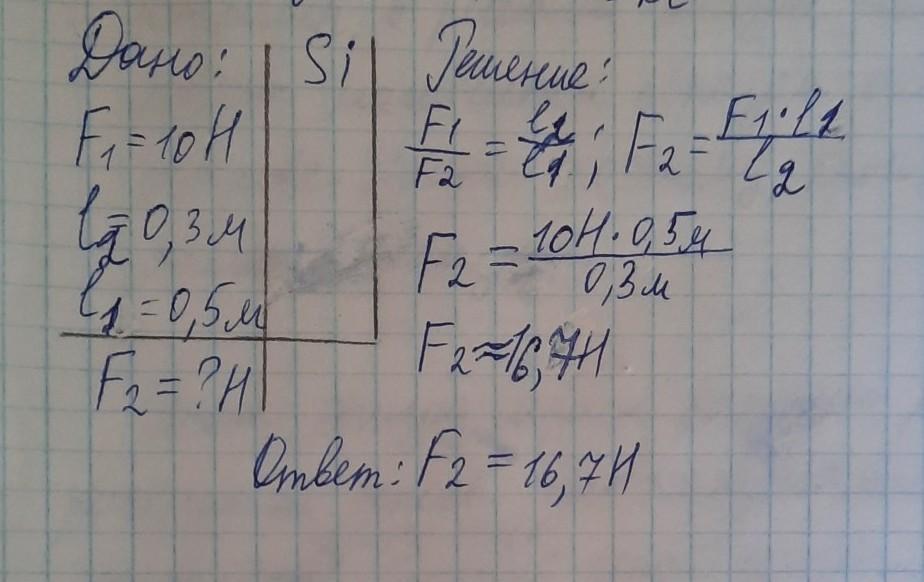 Дано:
Si
F₁ = 10 Н
l₂ = 0,3 м
l₁ = 0,5 м
F₂ = ? Н
Решение:
F₁/F₂ = l₂/l₁; F₂ = F₁·l₁/l₂
F₂ = 10Н·0,5м/0,3м
F₂ ≈ 16,7Н
Ответ: F₂ = 16,7Н